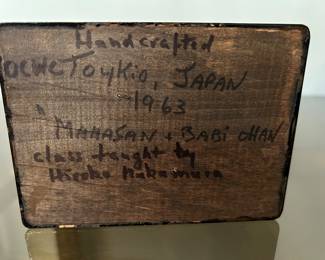 Handcrafted
OCWC Toykio, JAPAN
1963
"MAMASAN + BABI CHAN
class taught by
Hiroko Nakamura